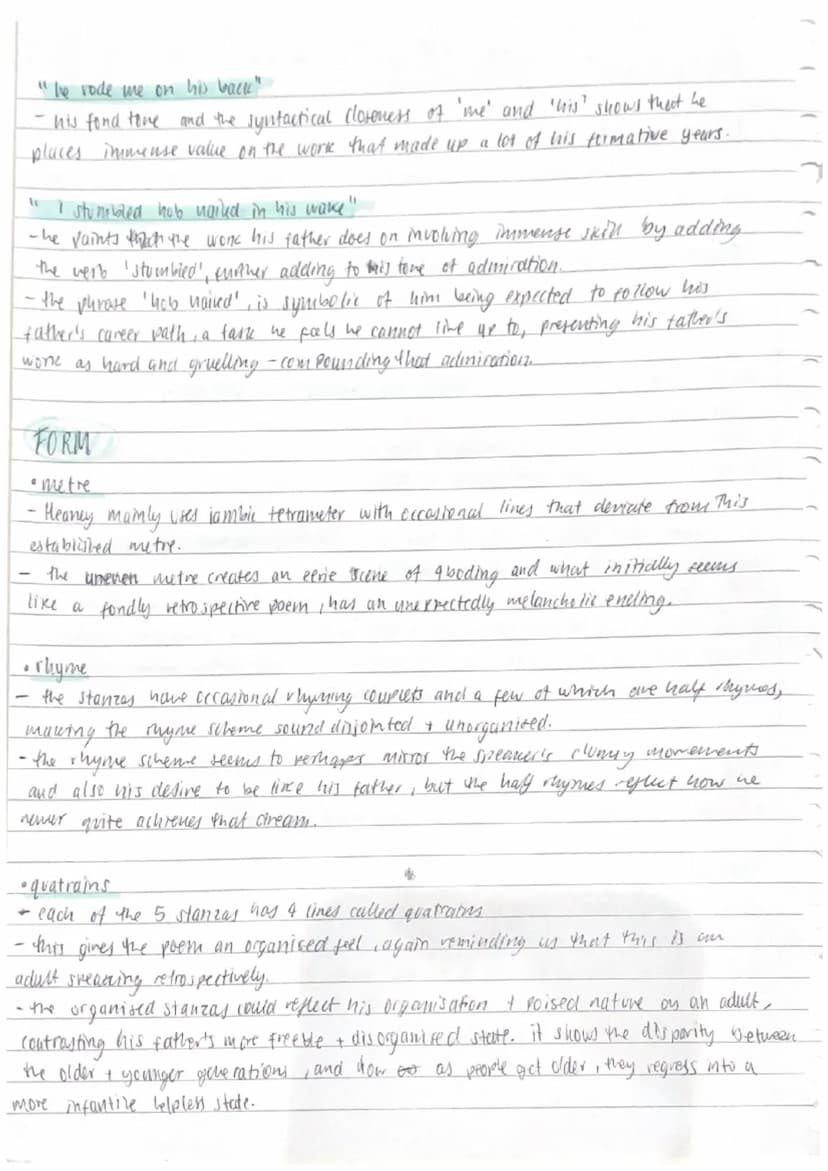 "he rode me on his back"
- his fond tone and the syntactical closeness of 'me' and 'his' shows that he
places immense value on the work that made up a lot of his formative years.
"I stumbled hob nailed in his wake"
- he paints the work his father does on involving immense skill by adding
the verb 'stumbled', further adding to his tone of admiration.
- the phrase 'hob nailed', is symbolic of him being expected to follow his
father's career path, a task he feels he cannot live up to, presenting his father's
work as hard and gruelling - compounding that admiration.
FORM
• metre
- Heaney mainly uses iambic tetrameter with occasional lines that deviate from this
established metre.
- the uneven metre creates an eerie scene of aboding and what initially seems
like a fondly retrospective poem, has an unexpectedly melancholic ending.
• rhyme
- the stanzas have occasional rhyming couplets and a few of which are half rhymes,
making the rhyme scheme sound disjointed + unorganised.
- the rhyme scheme seems to perhaps mirror the speaker's clumsy movements
and also his desire to be like his father, but the half rhymes reflect how he
never quite achieves that dream.
• quatrains
- each of the 5 stanzas has 4 lines called quatrains
- this gives the poem an organised feel, again reminding us that this is an
adult speaking retrospectively.
- the organised stanzas could reflect his organisation + poised nature as an adult,
contrasting his father's more freeble + disorganised state. it shows the disparity between
the older + younger generations, and how as people get older, they regress into a
more infantile helpless state.